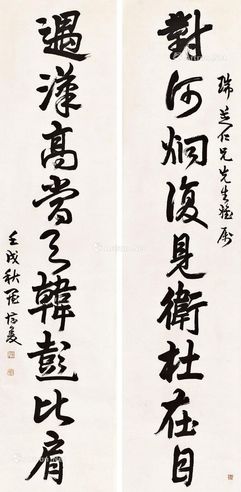 瑞芝仁兄先生雅屬
對何炯復見衛杜在目
遇漢高當与韓彭比肩
壬戌秋